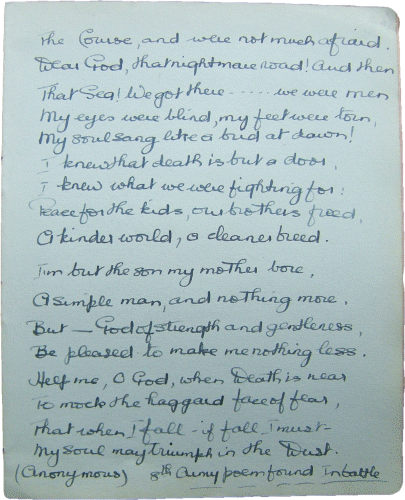 the Course, and were not much afraid.
Dear God, that nightmare road! And then
That Sea! We got there ------ we were men
My eyes were blind, my feet were torn,
My soul sang like a bird at dawn!
I knew that death is but a door,
I knew what we were fighting for:
Peace for the kids, our brothers freed,
A kinder world, a cleaner breed.
I'm but the son my mother bore,
A simple man, and nothing more.
But — God of strength and gentleness,
Be pleased to make me nothing less.
Help me, O God, when Death is near
To mock the haggard face of fear,
That when I fall - if fall I must -
My soul may triumph in the Dust.
(Anonymous) 8th Army poem found In battle